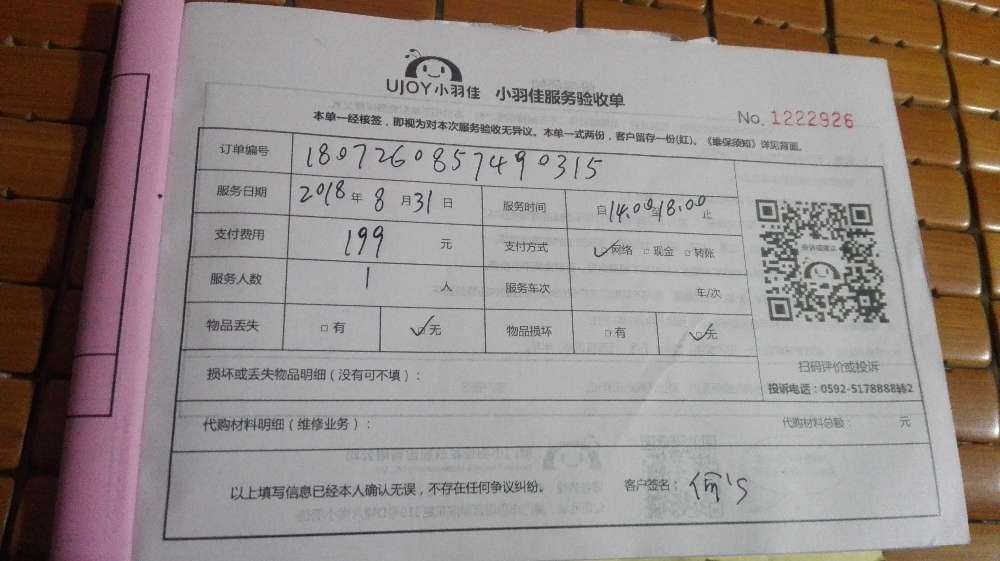 UJOY小羽佳 小羽佳服务验收单
No. 1222926
本单一经核签，即视为对本次服务验收无异议。本单一式两份，客户留存一份(红)。《集保须知》详见背面。
订单编号 180726085749 0315
服务日期 2018年8月31日 服务时间 自14:00至18:00止
支付费用 199元 支付方式 ☑网络 □现金 □转账
服务人数 1人 服务车次 车/次
物品丢失 □有 ☑无 物品损坏 □有 ☑无
损坏或丢失物品明细（没有可不填）：
扫码评价或投诉
投诉电话：0592-5178888转2
代购材料明细（维修业务）： 代购材料总额： 元
以上填写信息已经本人确认无误，不存在任何争议纠纷。 客户签名：何